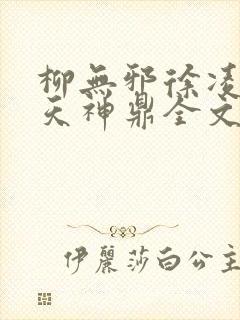 柳無邪徐凌
天神鼎全文
伊麗莎白公主